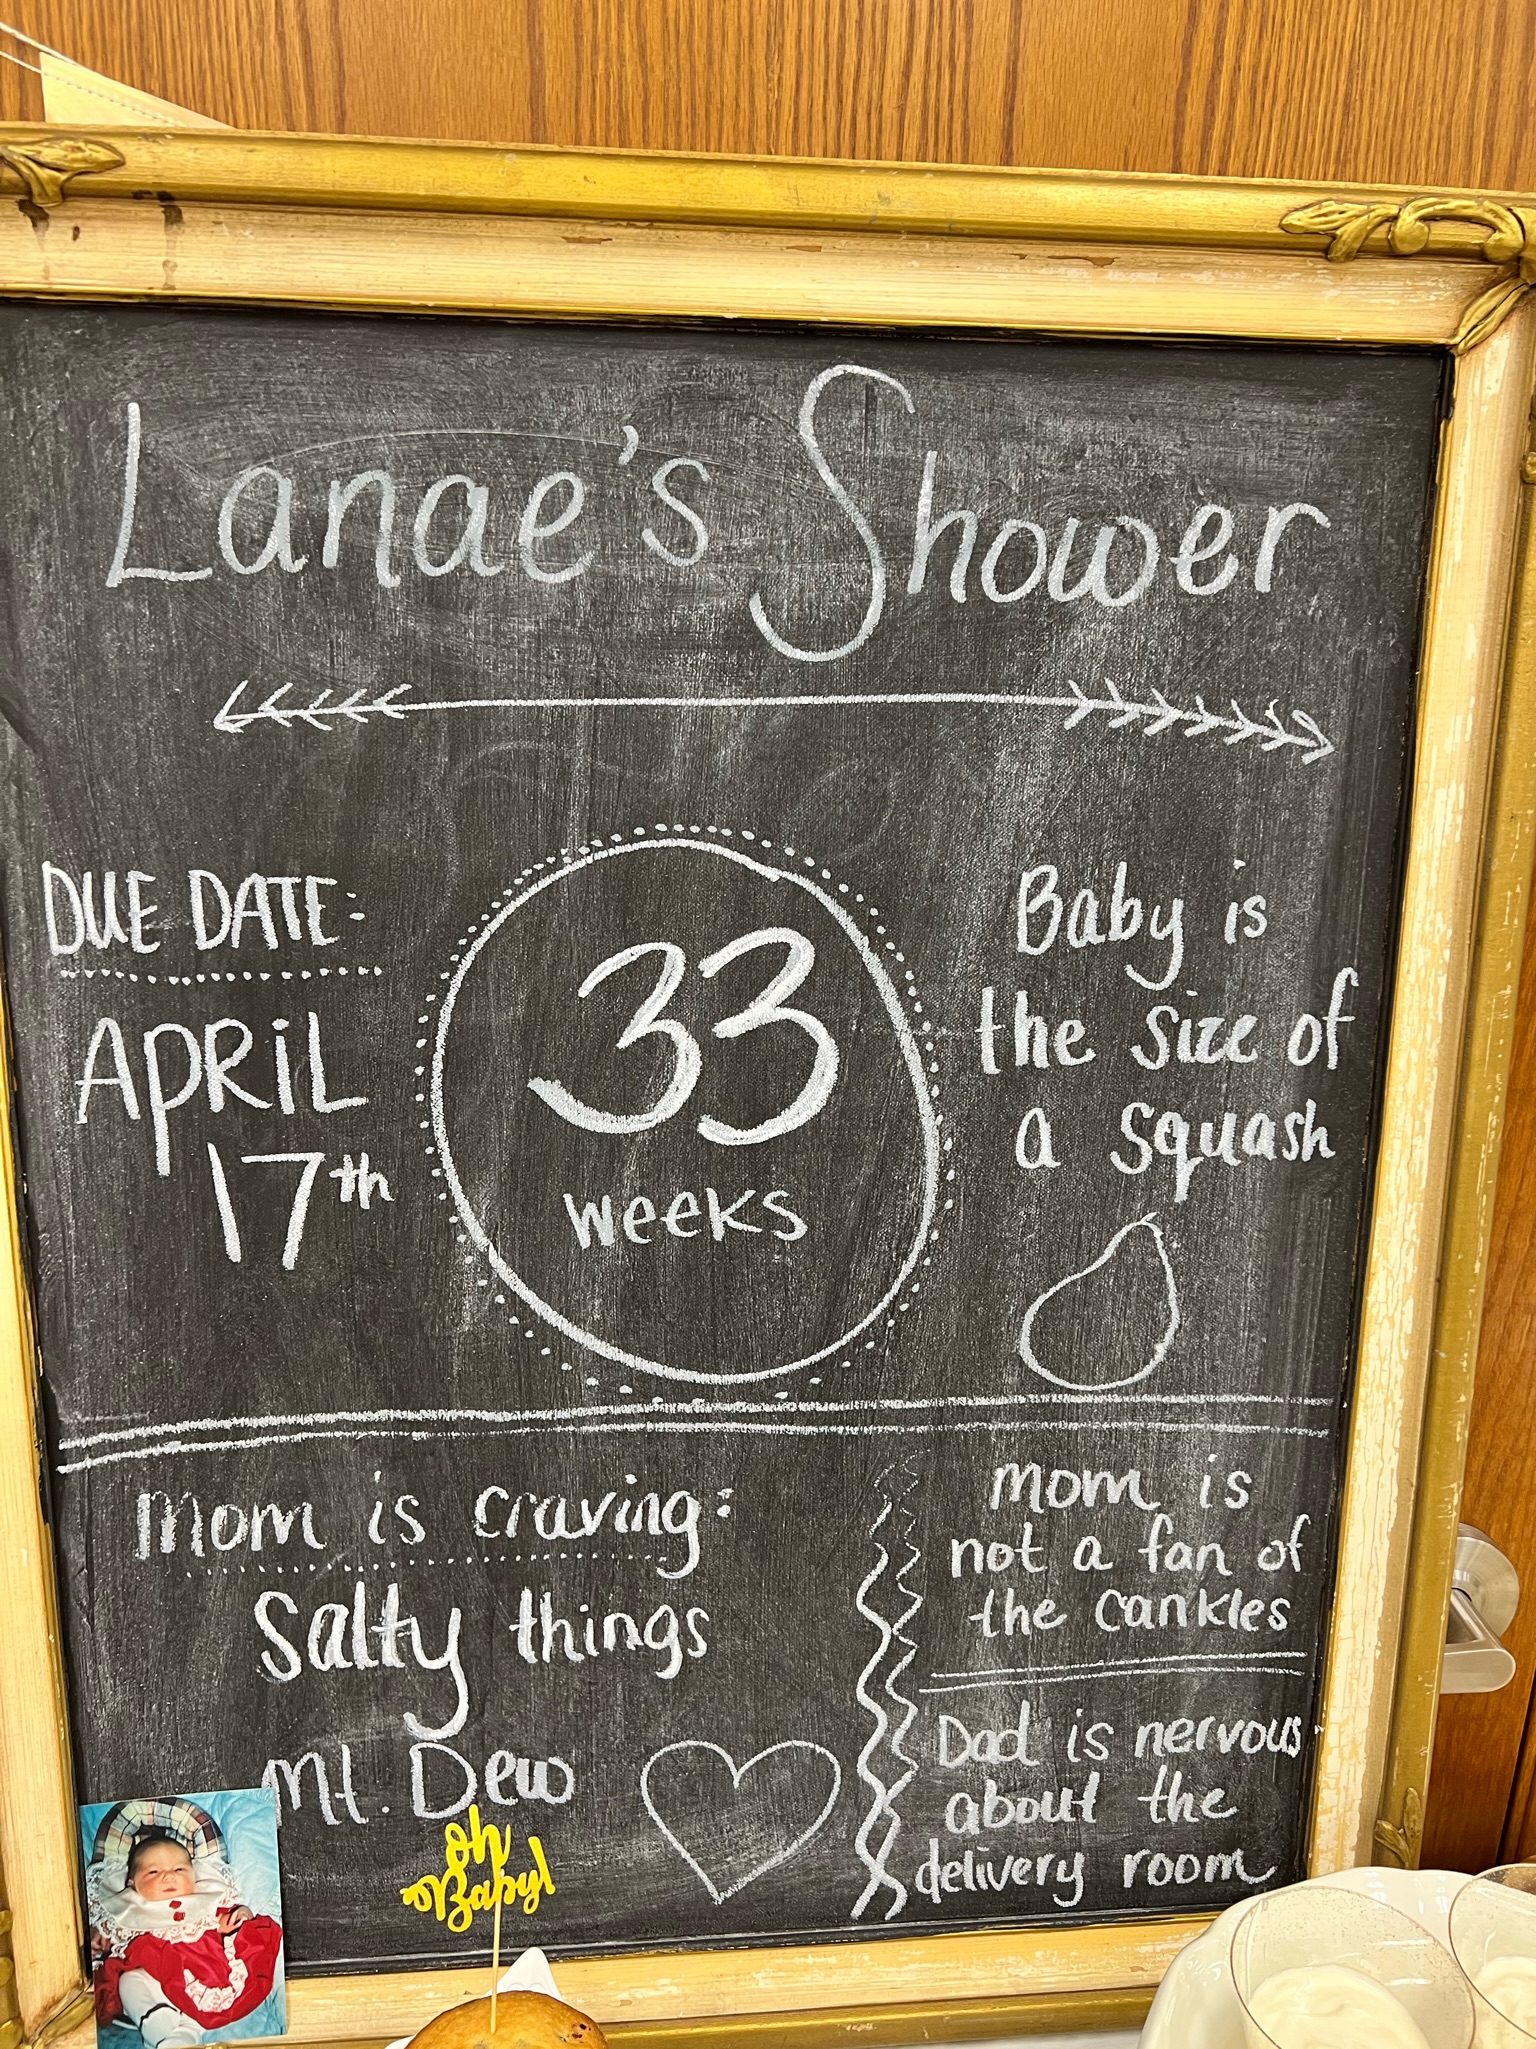 Lanae's Shower
DUE DATE:
APRiL
17th
33
weeks
Baby is
the size of
a squash
Mom is craving:
Salty things
Mt. Dew
mom is
not a fan of
the cankles
Dad is nervous
about the
delivery room
oh
Baby!